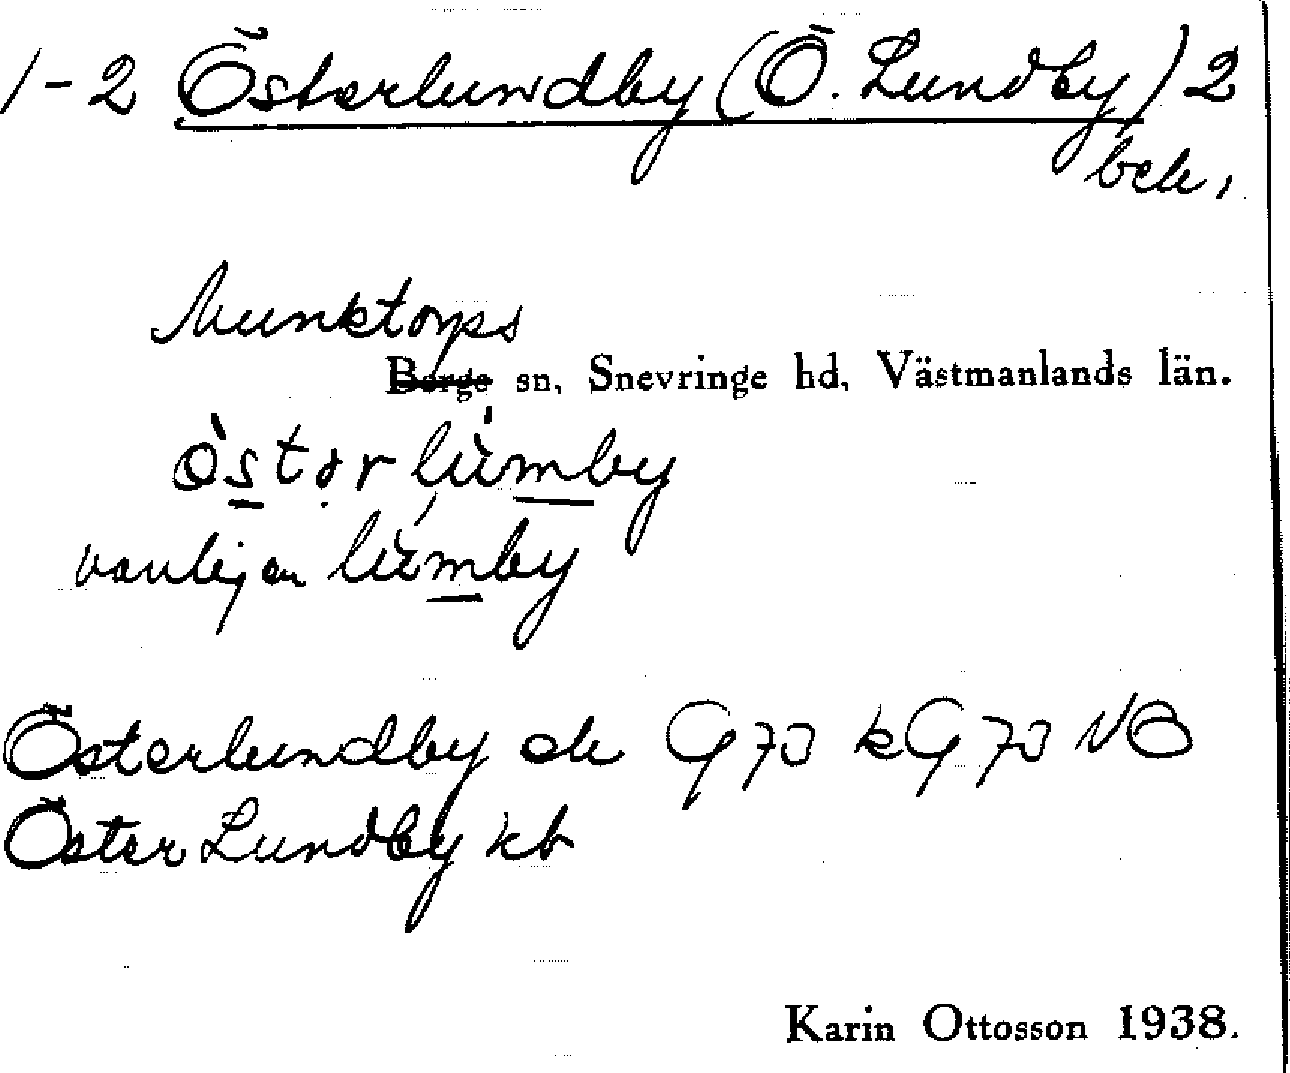 1-2 Österlundby (Ö. Lundby) 2
beb.
Munktorps
Bergs sn, Snevringe hd, Västmanlands län.
östər lùmby
vanligen lùmby
Österlundby ek G 73 kG 73 NB
Öster Lundby kb
Karin Ottosson 1938.